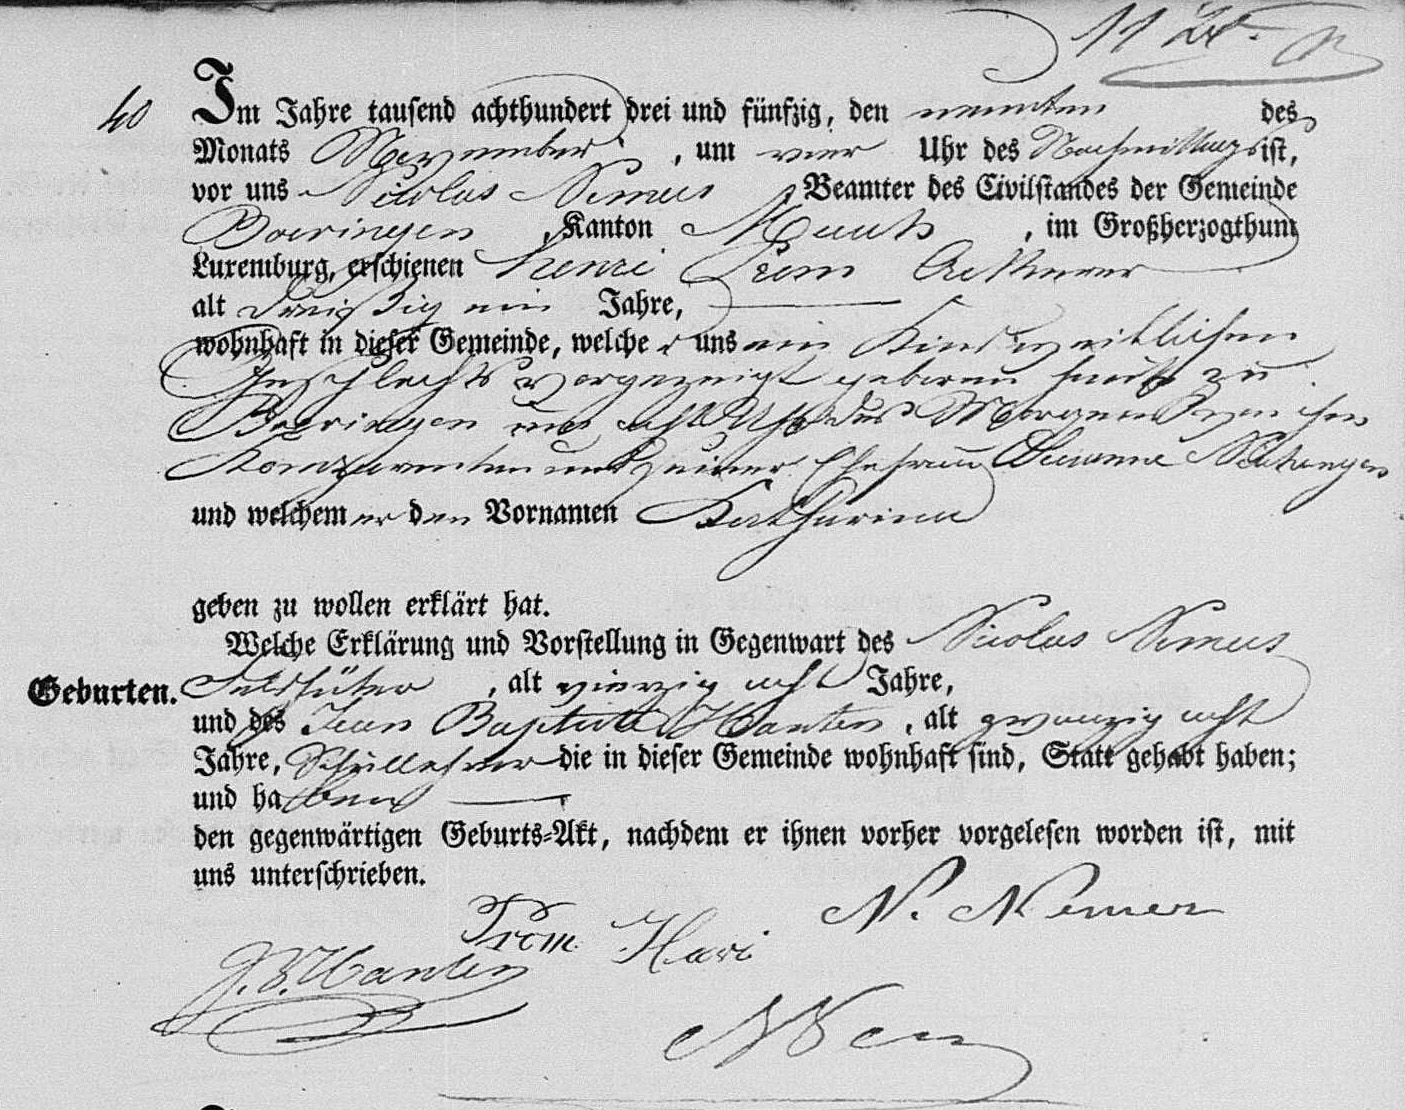 40
Im Jahre tausend achthundert drei und fünfzig, den neunten des
Monats November, um vier Uhr des Nachmittags ist,
vor uns Nicolas Nemers Beamter des Civilstandes der Gemeinde
Boevingen, Kanton, im Großherzogthum
Luxemburg, erschienen Henri Prom Ackerer
alt dreißig ein Jahre,
wohnhaft in dieser Gemeinde, welcher uns ein Kind weiblichen
Geschlechts vorgezeigt geboren heute zu
Boevingen um acht Uhr des Morgens von ihm
Komparenten und seiner Ehefrau Susanna
und welchem er den Vornamen Katharina
geben zu wollen erklärt hat.
Welche Erklärung und Vorstellung in Gegenwart des Nicolas Nemers
Feldhüter, alt vierzig acht Jahre,
und des Jean Baptiste Hanten, alt zwanzig acht
Jahre, Schullehrer die in dieser Gemeinde wohnhaft sind, Statt gehabt haben;
und haben
Geburten.
den gegenwärtigen Geburts-Akt, nachdem er ihnen vorher vorgelesen worden ist, mit
uns unterschrieben.
N. Nemer
Prom Hari
J. B. Hanten